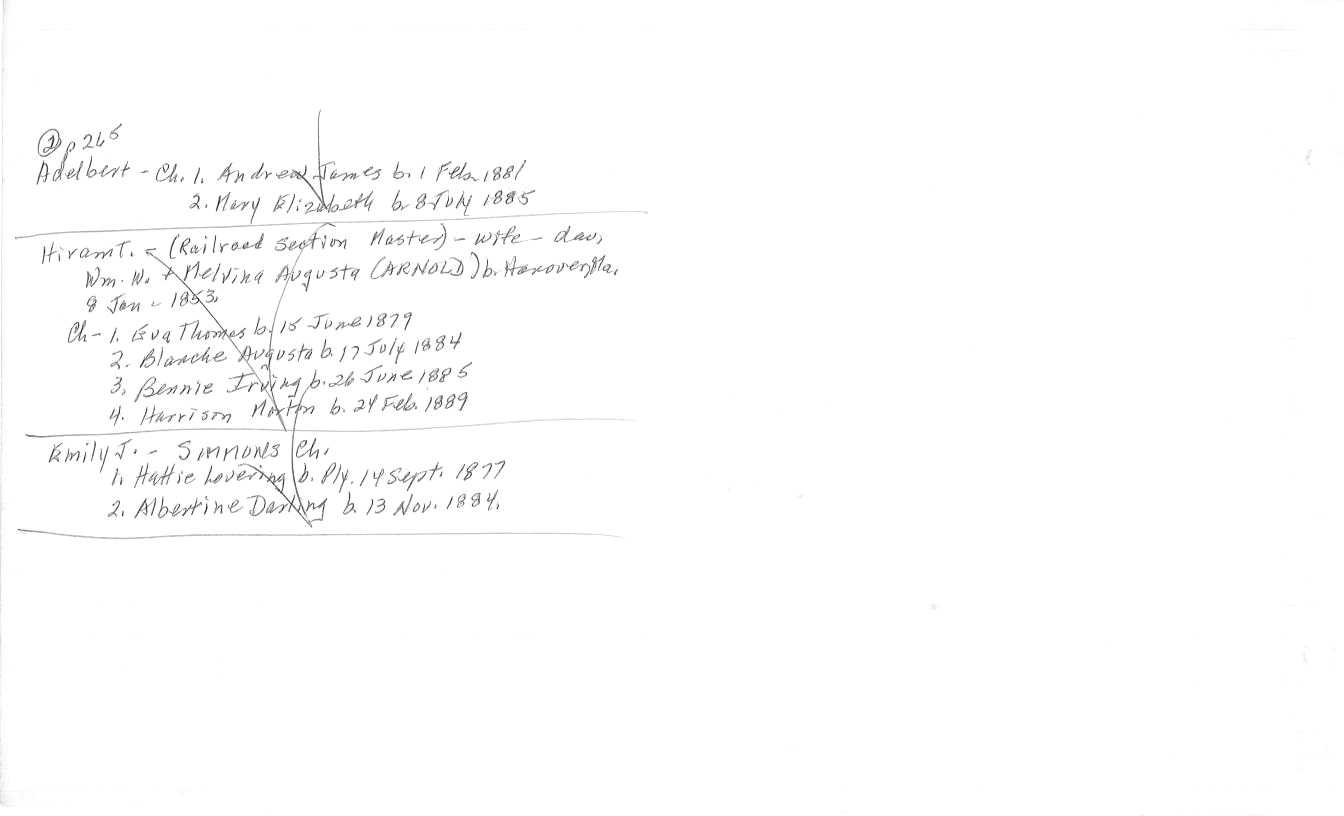 ② p 265
Adelbert - Ch. 1. Andrew James b. 1 Feb 1881
2. Mary Elizabeth b. 8 July 1885
Hiram T. - (Railroad Section Master) - wife - dau,
Wm. W. & Melvina Augusta (ARNOLD) b. Hanover, Ma.
8 Jan - 1853.
Ch - 1. Eva Thomas b. 15 June 1879
2. Blanche Augusta b. 17 July 1884
3. Bennie Irving b. 26 June 1885
4. Harrison Morton b. 24 Feb. 1889
Emily J. - SIMMONS Ch.
1. Hattie Lovering b. Ply. 14 Sept. 1877
2. Albertine Darling b. 13 Nov. 1884.